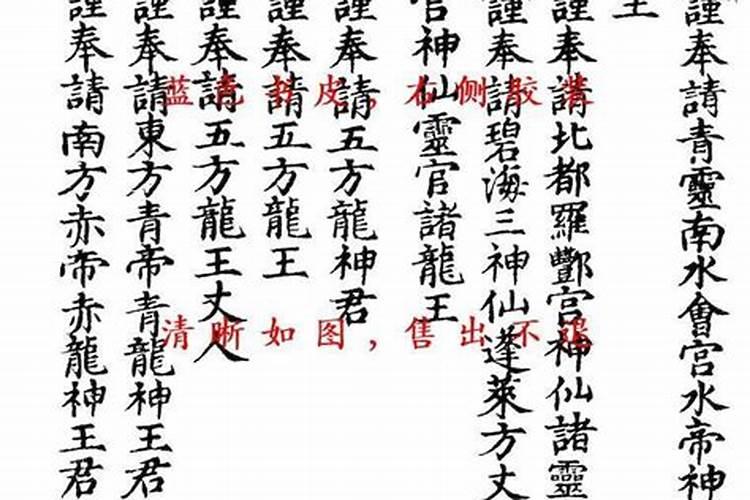 謹奉請青靈南水會宮水帝神
王
謹奉請北都羅酆宮神仙諸靈
謹奉請碧海三神仙蓬萊方丈
官神仙靈官諸龍王
謹奉請五方龍神君
謹奉請五方龍王
謹奉請五方龍王丈人
謹奉請東方青帝青龍神王君
謹奉請南方赤帝赤龍神王君
蓝色书皮，右侧胶装
清晰如图，售出不退